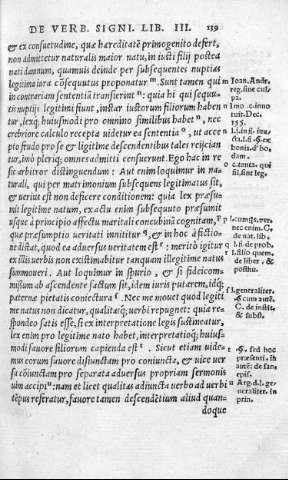 DE VERB. SIGNI. LIB. III. 139
& ex consuetudine, quæ hæreditatē primogenito defert,
non admittetur naturalis maior natu, in iusti filij postea
nati damnum, quamuis deinde per subsequentes nuptias
legitima iura cōsequutus proponatur ᵐ. Sunt tamen qui
in contrariam sententiā transierint ⁿ: quia hi qui sequu-
tis nuptijs legitimi fiunt, instar iustorum filiorum haben
tur, lexq; huiusmodi pro omnino similibus habet ⁿ, nec
crebriore calculo recepta uidetur ea sententia ᵒ, ut acce
pto feudo pro se & legitime descendentibus tales reijcian
tur, imò plerisq; omnes admitti censuerunt. Ego hac in re
sic arbitror distinguendum: Aut enim loquimur in na-
turali, qui per matrimonium subsequens legitimatus sit,
& uerius est non deficere conditionem: quia lex præsu-
mit legitime natum, ex actu enim subsequuto præsumit
usque à principio affectu maritali concubinā cognitam, ᵖ
quæ præsumptio ueritati innititur ᵠ, & in hoc afficio-
ni dictat, quod ea aduersus ueritatem est ʳ: meritò igitur
ex illius uerbis non existimabitur tanquam illegitime natus
summoueri. Aut loquimur in spurio, & si fideicom-
missum ab ascendente factum sit, idem iuris putarem, idq;
paternæ pietatis coniectura ˢ. Nec me mouet quod legiti
me natus non dicatur, qualitasq; uerbi repugnet: quia re-
spondeo satis esse, si ex interpretatione legis sustineatur,
lex enim pro legitime nato habet, interpretatioq; huius-
modi fauore filiorum capienda est ᵗ. Sicut etiam uide-
mus eorum fauore disiunctam pro coniuncta, & uice uer
sa cōiunctam pro separata aduersus propriam sermonis
uim accipi ᵘ: nam et licet qualitas adiuncta uerbo ad uerbi
tēpus referatur, fauore tamen descendētium aliud quan-
doque
m Ioan. Andr.
reg. sine cul
pa.
155.
bonis. d ho
dam.
fil. sunt leg.
nec enim. C.
de nat. lib.
q l. fi. de prob.
r l. filio quem
de liber. &
posthu.
s l. generaliter.
§. cum autē.
C. de instit.
& subst.
t §. sed hoc
præsenti. in
autē. de san-
u Arg. d. l. ge-
neraliter. in
prin.